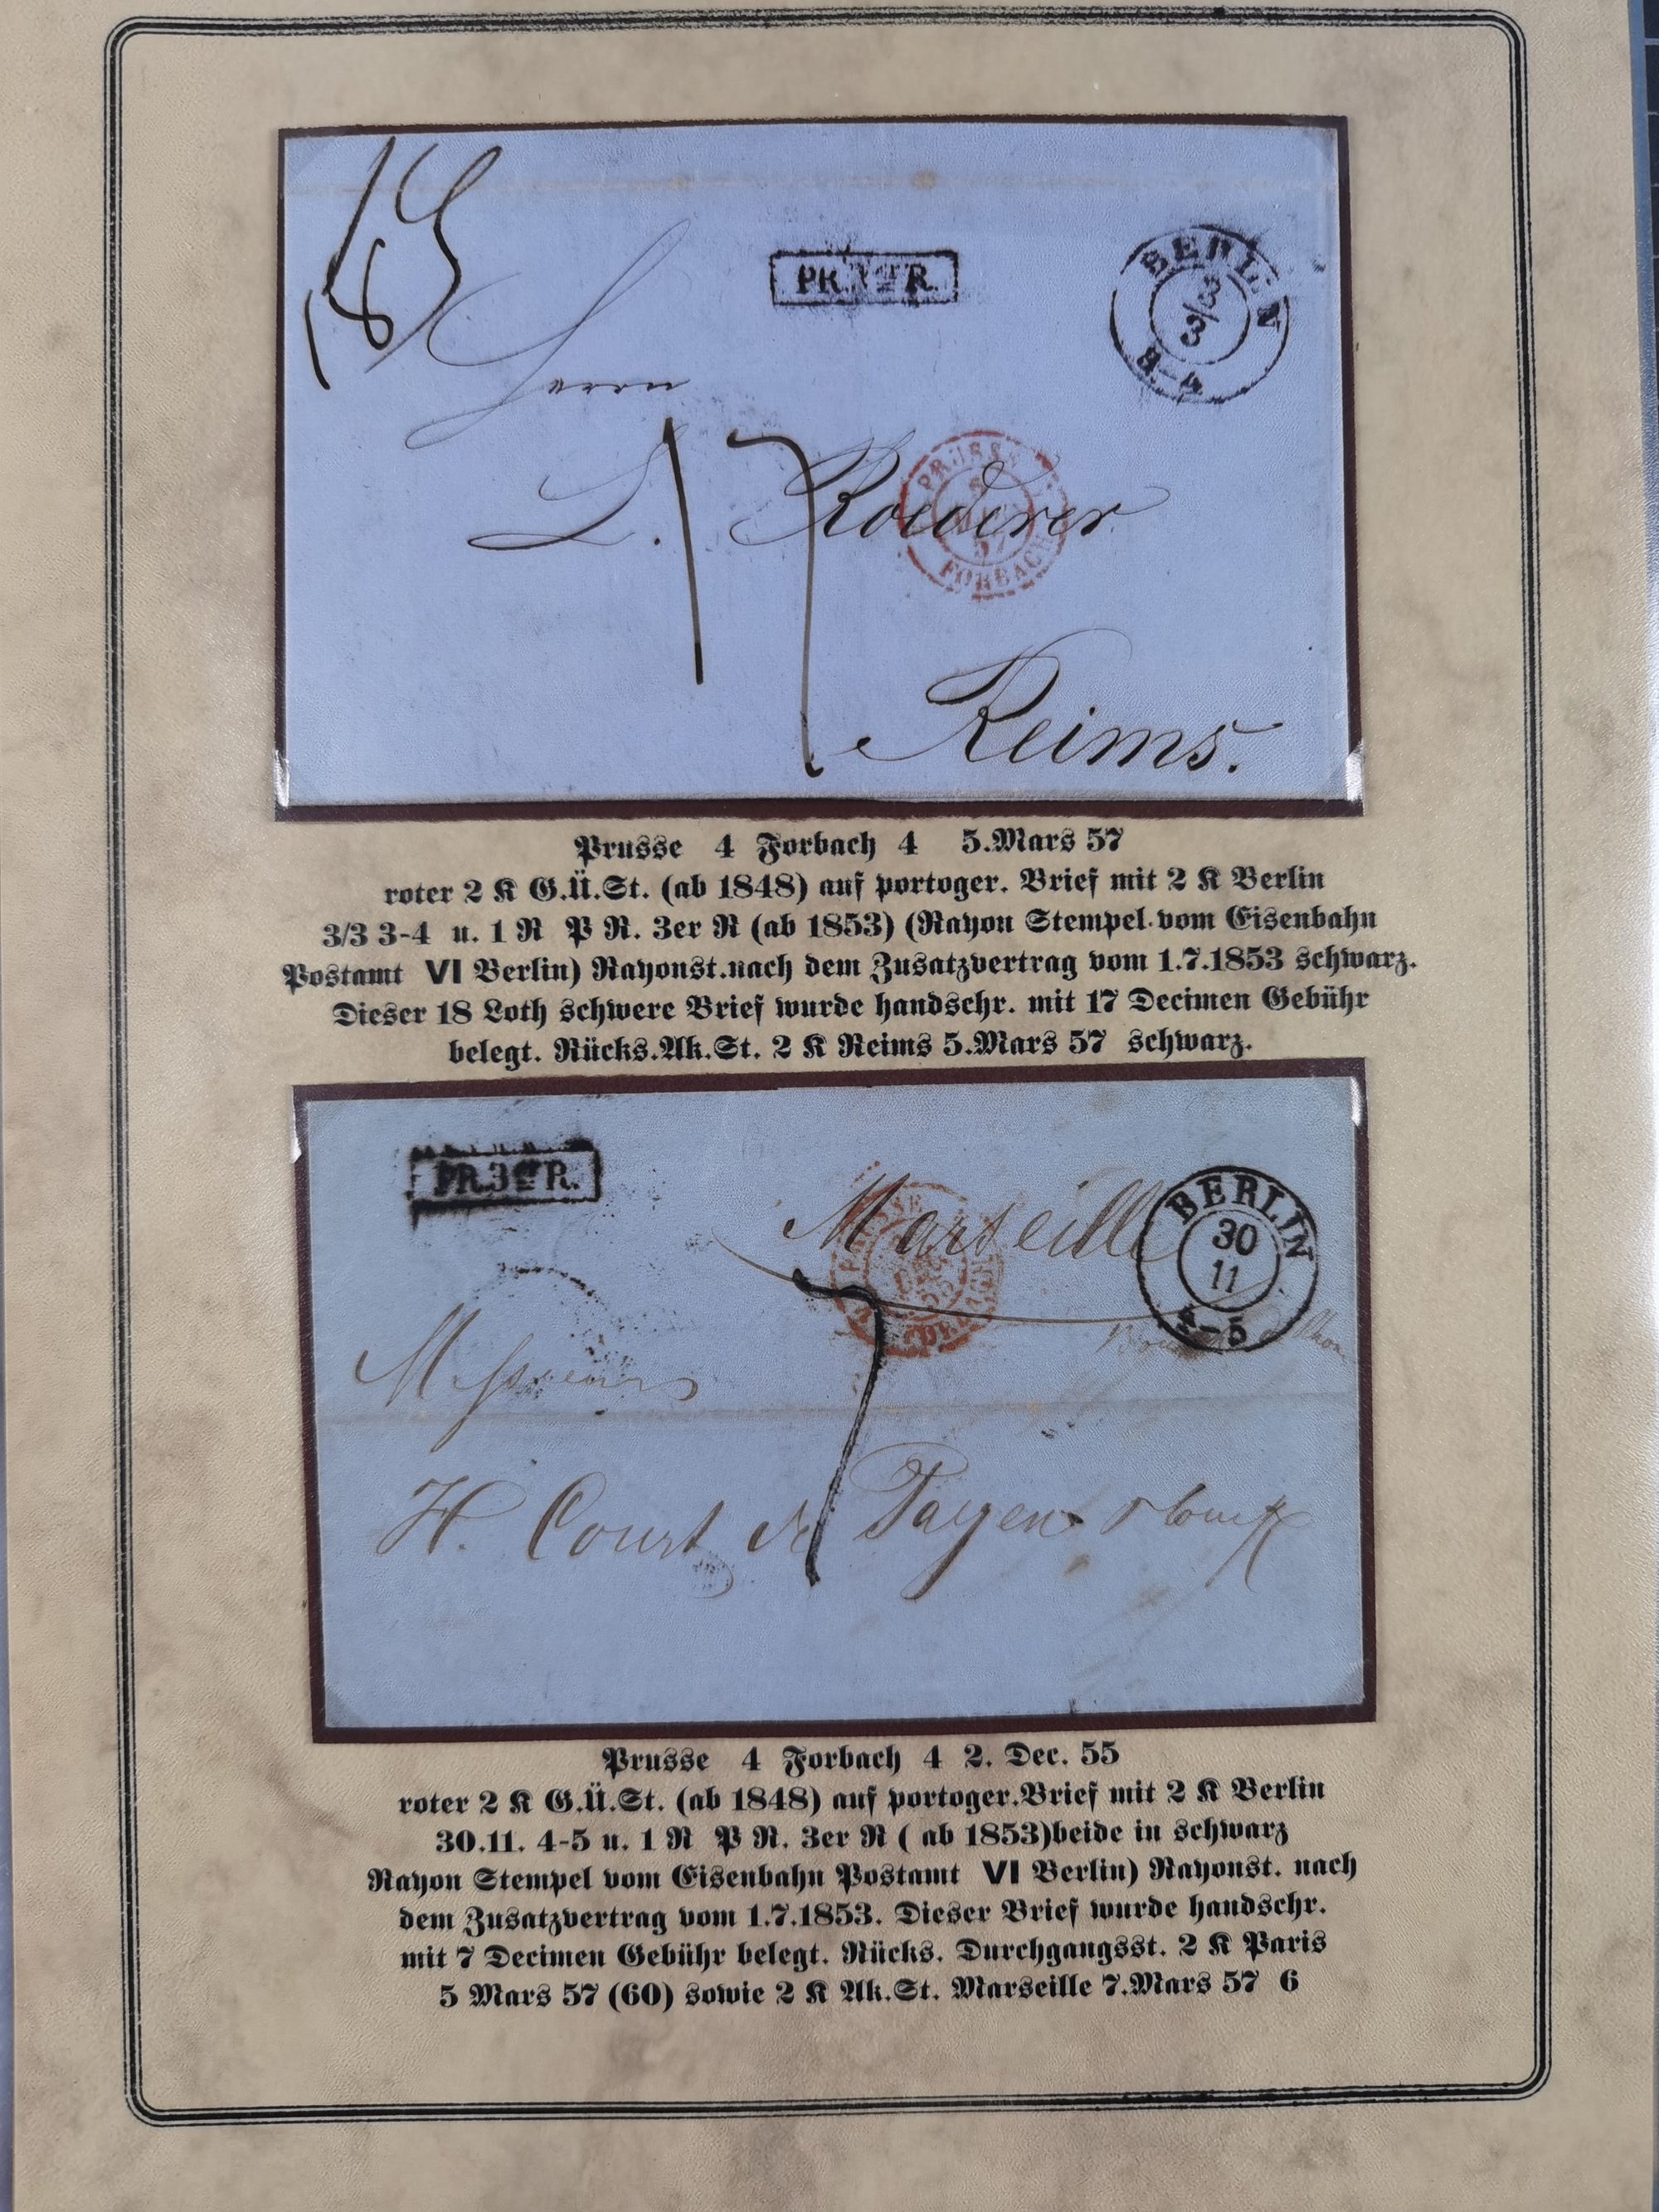 18
PR.3er R.
BERLIN
3/3
3-4
Herrn
L. Roederer
17
PRUSSE
5
57
FORBACH
Reims.
Prusse 4 Forbach 4 5.Mars 57
roter 2 K G.Ü.St. (ab 1848) auf portoger. Brief mit 2 K Berlin
3/3 3-4 u. 1 R P R. 3er R (ab 1853) (Rayon Stempel vom Eisenbahn
Postamt VI Berlin) Rayonst.nach dem Zusatzvertrag vom 1.7.1853 schwarz.
Dieser 18 Loth schwere Brief wurde handschr. mit 17 Decimen Gebühr
belegt. Rücks.Ak.St. 2 K Reims 5.Mars 57 schwarz.
PR.3er R.
Marseille
BERLIN
30
11
4-5
PRUSSE
DEC
55
7
Messieurs
H. Court & Payen
Prusse 4 Forbach 4 2. Dec. 55
roter 2 K G.Ü.St. (ab 1848) auf portoger.Brief mit 2 K Berlin
30.11. 4-5 u. 1 R P R. 3er R ( ab 1853)beide in schwarz
Rayon Stempel vom Eisenbahn Postamt VI Berlin) Rayonst. nach
dem Zusatzvertrag vom 1.7.1853. Dieser Brief wurde handschr.
mit 7 Decimen Gebühr belegt. Rücks. Durchgangsst. 2 K Paris
5 Mars 57 (60) sowie 2 K Ak.St. Marseille 7.Mars 57 6